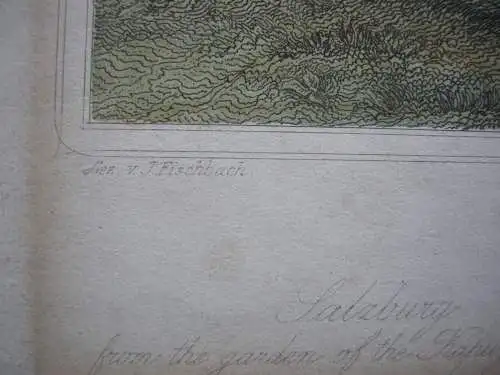 Gez. v. J. Fischbach.
Salzburg
from the garden of the